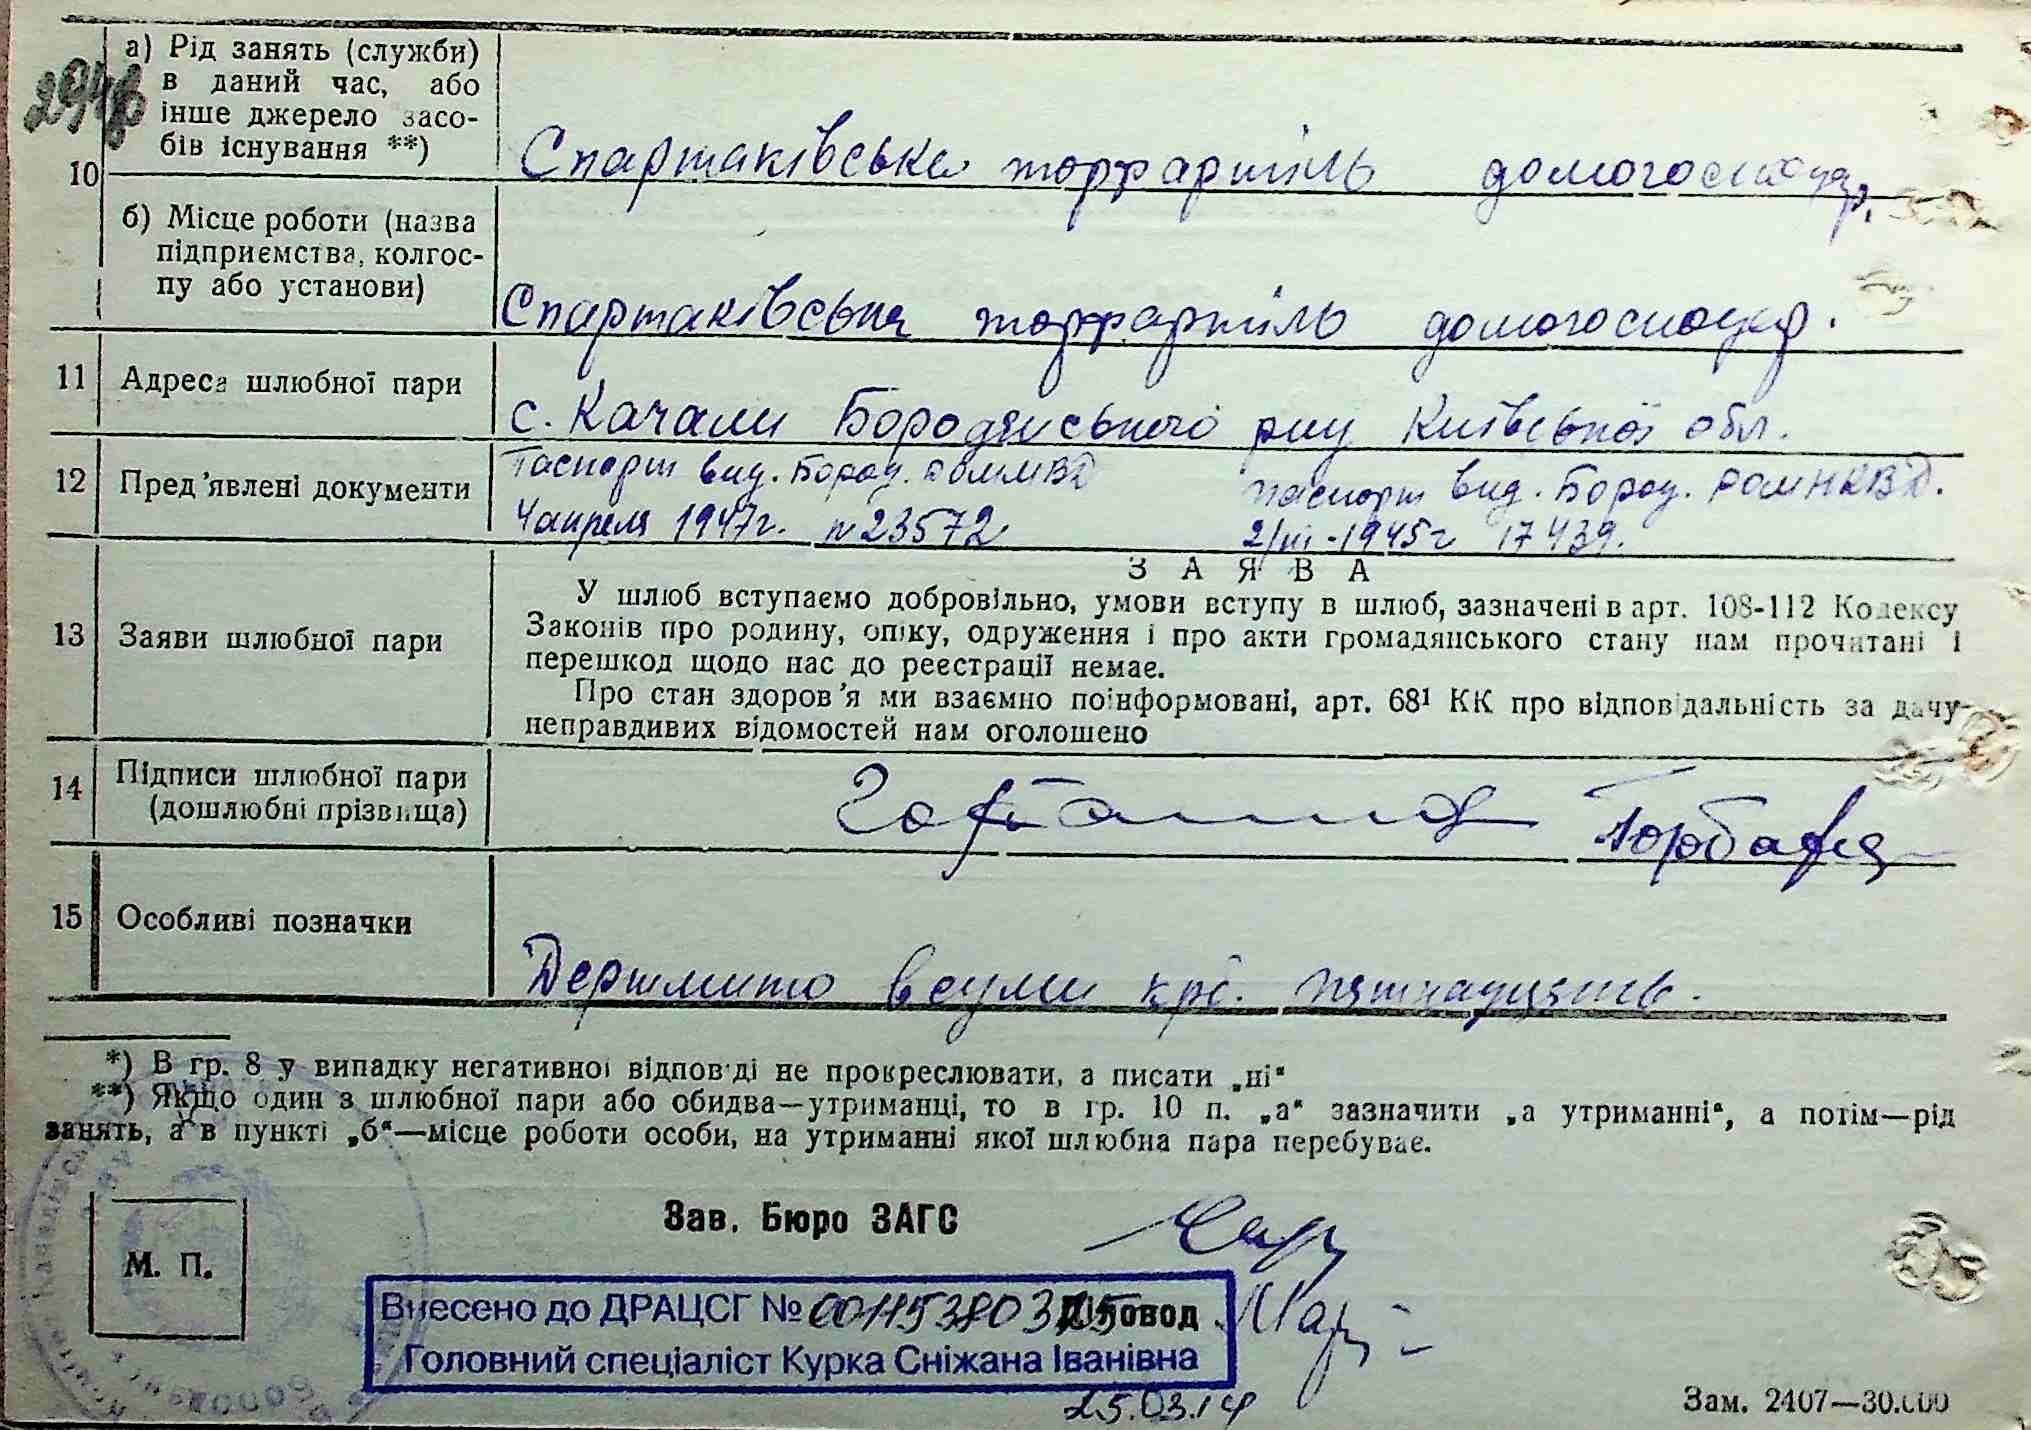 а) Рід занять (служби)
в даний час, або
інше джерело засо-
бів існування **)
10
Спартаківська торфартіль домогосподар.
б) Місце роботи (назва
підприємства, колгос-
пу або установи)
Спартаківська торфартіль домогосподар.
11 Адреса шлюбної пари
с. Качали Бородянського р-ну Київської обл.
12 Пред'явлені документи
Паспорт вид. Бород. РОММВД
4 апреля 1947г. № 23572
паспорт вид. Бород. РОМНКВД.
2/III-1945г 17439.
ЗАЯВА
13 Заяви шлюбної пари
У шлюб вступаємо добровільно, умови вступу в шлюб, зазначені в арт. 108-112 Кодексу
Законів про родину, опіку, одруження і про акти громадянського стану нам прочитані і
перешкод щодо нас до реєстрації немає.
Про стан здоров'я ми взаємно поінформовані, арт. 68¹ КК про відповідальність за дачу
неправдивих відомостей нам оголошено
14 Підписи шлюбної пари
(дошлюбні прізвища)
15 Особливі позначки
Держмито в сумі крб. пятнадцять.
*) В гр. 8 у випадку негативної відповіді не прокреслювати, а писати „ні“
**) Якщо один з шлюбної пари або обидва—утриманці, то в гр. 10 п. „а“ зазначити „а утриманні“, а потім—рід
занять, а в пункті „б“—місце роботи особи, на утриманні якої шлюбна пара перебуває.
М. П.
Зав. Бюро ЗАГС
Внесено до ДРАЦСГ № 00115380375
Діловод
Головний спеціаліст Курка Сніжана Іванівна
25.03.14
Зам. 2407—30.000